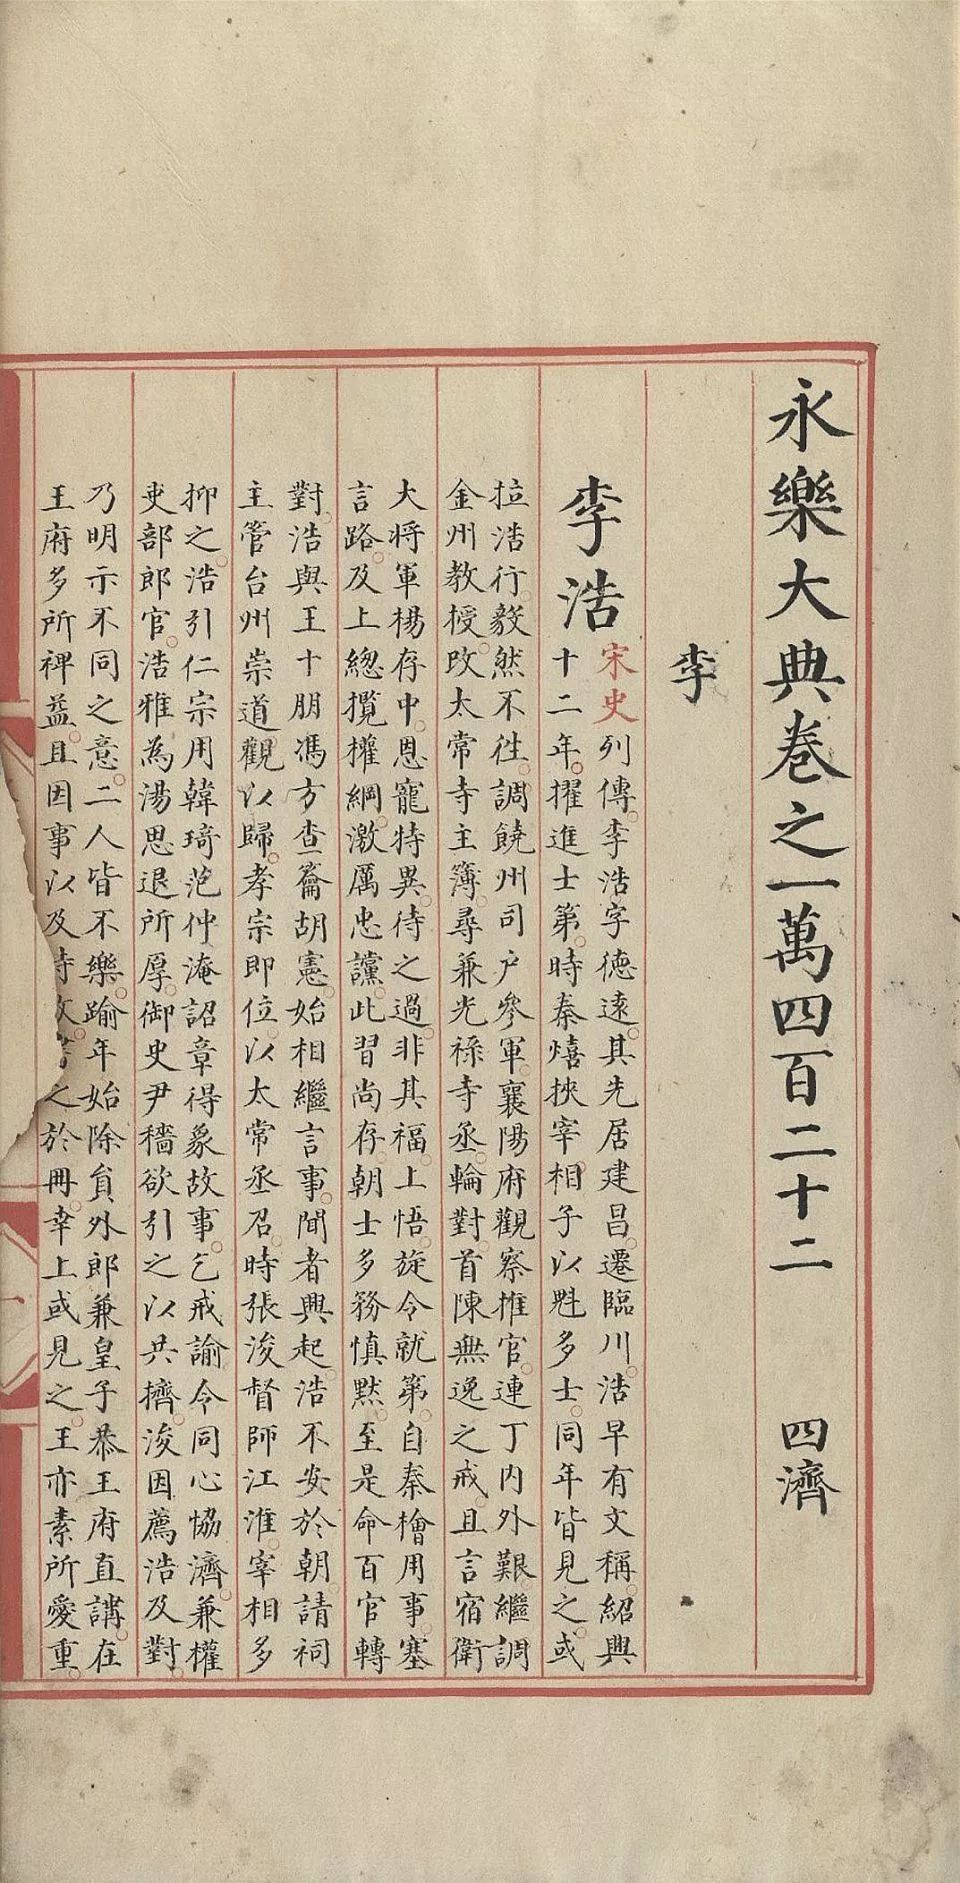 永樂大典卷之一萬四百二十二 四濟
李
李浩
宋史列傳李浩字德遠其先居建昌遷臨川浩早有文稱紹興
十二年擢進士第時秦熺挾宰相子以魁多士同年皆見之或
拉浩行毅然不徃調饒州司户參軍襄陽府觀察推官連丁内外艱繼調
金州教授改太常寺主簿尋兼光祿寺丞輪對首陳無逸之戒且言宿衛
大將軍楊存中恩寵特異待之過非其福上悟旋令就第自秦檜用事塞
言路及上總攬權綱激厲忠讜此習尚存朝士多務慎默至是命百官轉
對浩與王十朋馮方查籥胡憲始相繼言事聞者興起浩不安於朝請祠
主管台州崇道觀以歸孝宗即位以太常丞召時張浚督師江淮宰相多
抑之浩引仁宗用韓琦范仲淹詔章得象故事乞戒諭令同心恊濟兼權
吏部郎官浩雅為湯思退所厚御史尹穡欲引之以共擠浚因薦浩及對
乃明示不同之意二人皆不樂踰年始除貟外郎兼皇子恭王府直講在
王府多所禆益且因事以及時之於冊幸上或見之王亦素所愛重